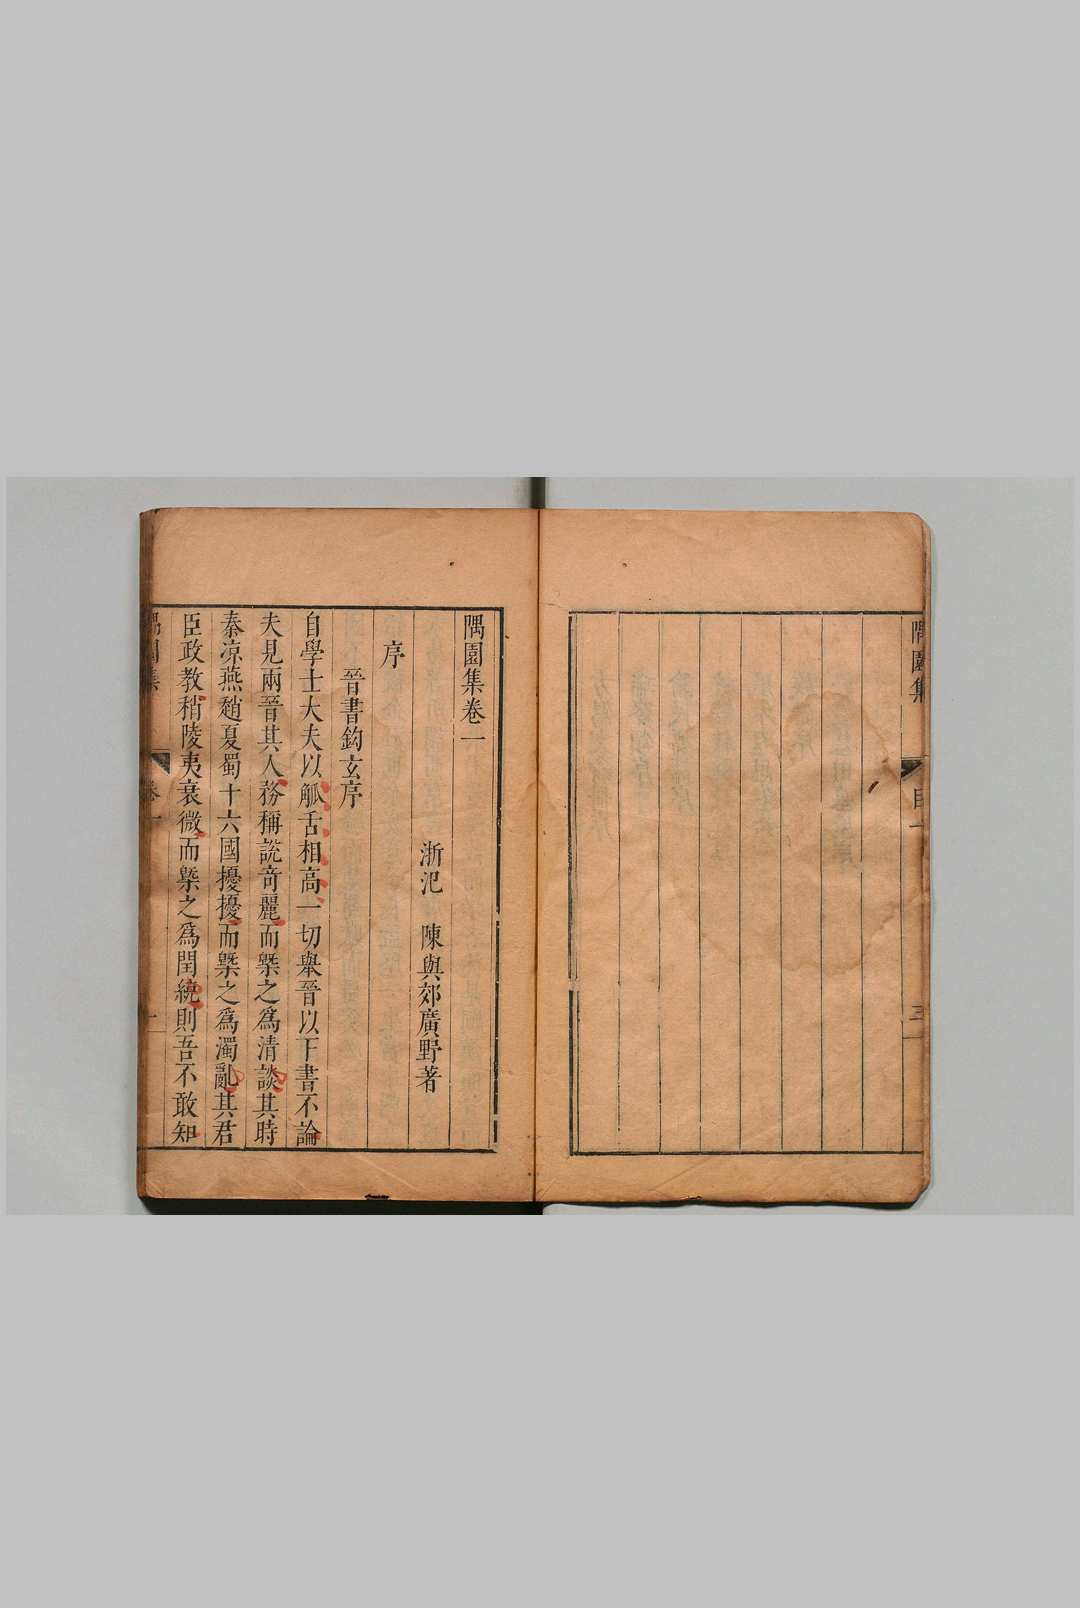 隅園集
目一
三
隅園集卷一
浙汜　陳與郊廣野著
序
晉書鈎玄序
自學士大夫以觚舌相高一切舉晉以下書不論
夫見兩晉其人務稱說奇麗而槩之為清談其時
秦凉燕趙夏蜀十六國擾擾而槩之為濁亂其君
臣政教稍陵夷衰微而槩之為閏統則吾不敢知
隅園集
卷一
一